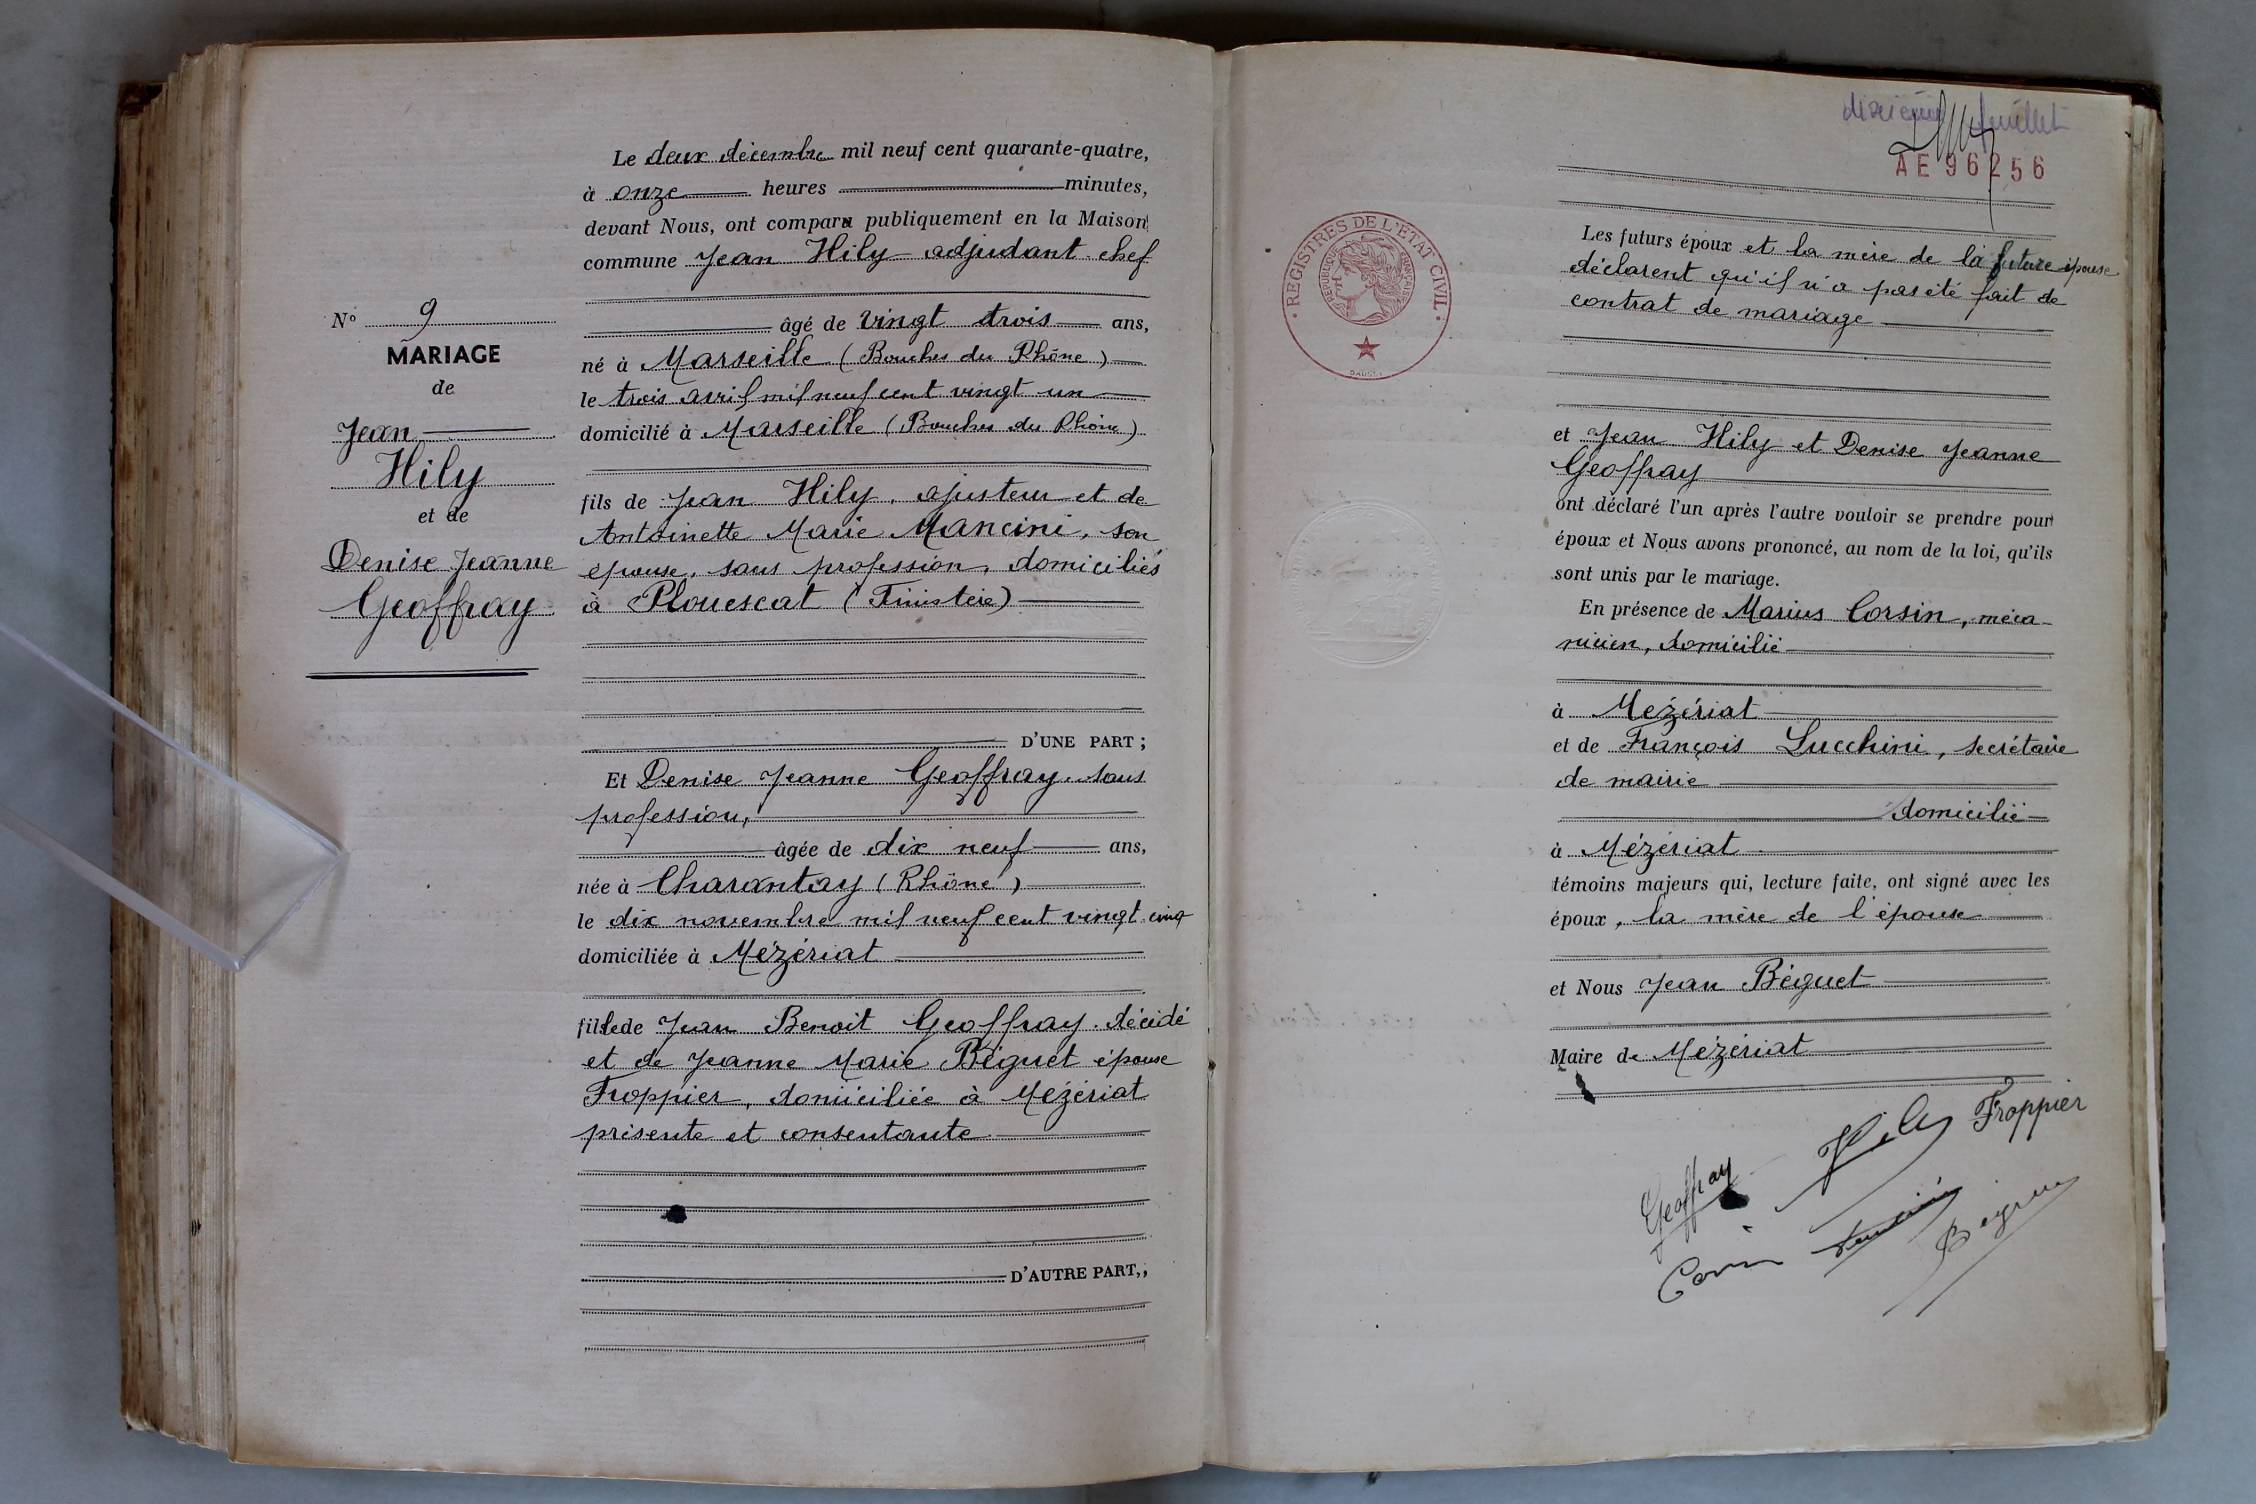 Le deux décembre mil neuf cent quarante-quatre,
à onze heures minutes,
devant Nous, ont comparu publiquement en la Maison
commune Jean Hily adjudant chef
âgé de vingt trois ans,
né à Marseille (Bouches du Rhône)
le trois avril mil neuf cent vingt un
domicilié à Marseille (Bouches du Rhône)
fils de Jean Hily, ajusteur et de
Antoinette Marie Mancini, son
épouse, sans profession, domiciliés
à Plouescat (Finistère)
D'UNE PART ;
N° 9
MARIAGE
de
Jean
Hily
et de
Denise Jeanne
Geoffray
Et Denise Jeanne Geoffray, sans
profession,
âgée de dix neuf ans,
née à Charantay (Rhône)
le dix novembre mil neuf cent vingt cinq
domiciliée à Mézériat
fille de Jean Benoit Geoffray, décédé
et de Jeanne Marie Béguet épouse
Froppier, domiciliée à Mézériat
présente et consentante.
D'AUTRE PART,,
feuillet
AE 96256
REGISTRES DE L'ÉTAT CIVIL
RÉPUBLIQUE FRANÇAISE
Les futurs époux et la mère de la future épouse
déclarent qu'il n'a pas été fait de
contrat de mariage
et Jean Hily et Denise Jeanne
Geoffray
ont déclaré l'un après l'autre vouloir se prendre pour
époux et Nous avons prononcé, au nom de la loi, qu'ils
sont unis par le mariage.
En présence de Marius Corsin, méca-
nicien, domicilié
à Mézériat
et de François Lucchini, secrétaire
de mairie
domicilié
à Mézériat
témoins majeurs qui, lecture faite, ont signé avec les
époux, la mère de l'épouse
et Nous Jean Béguet
Maire de Mézériat
Geoffray Hily Froppier